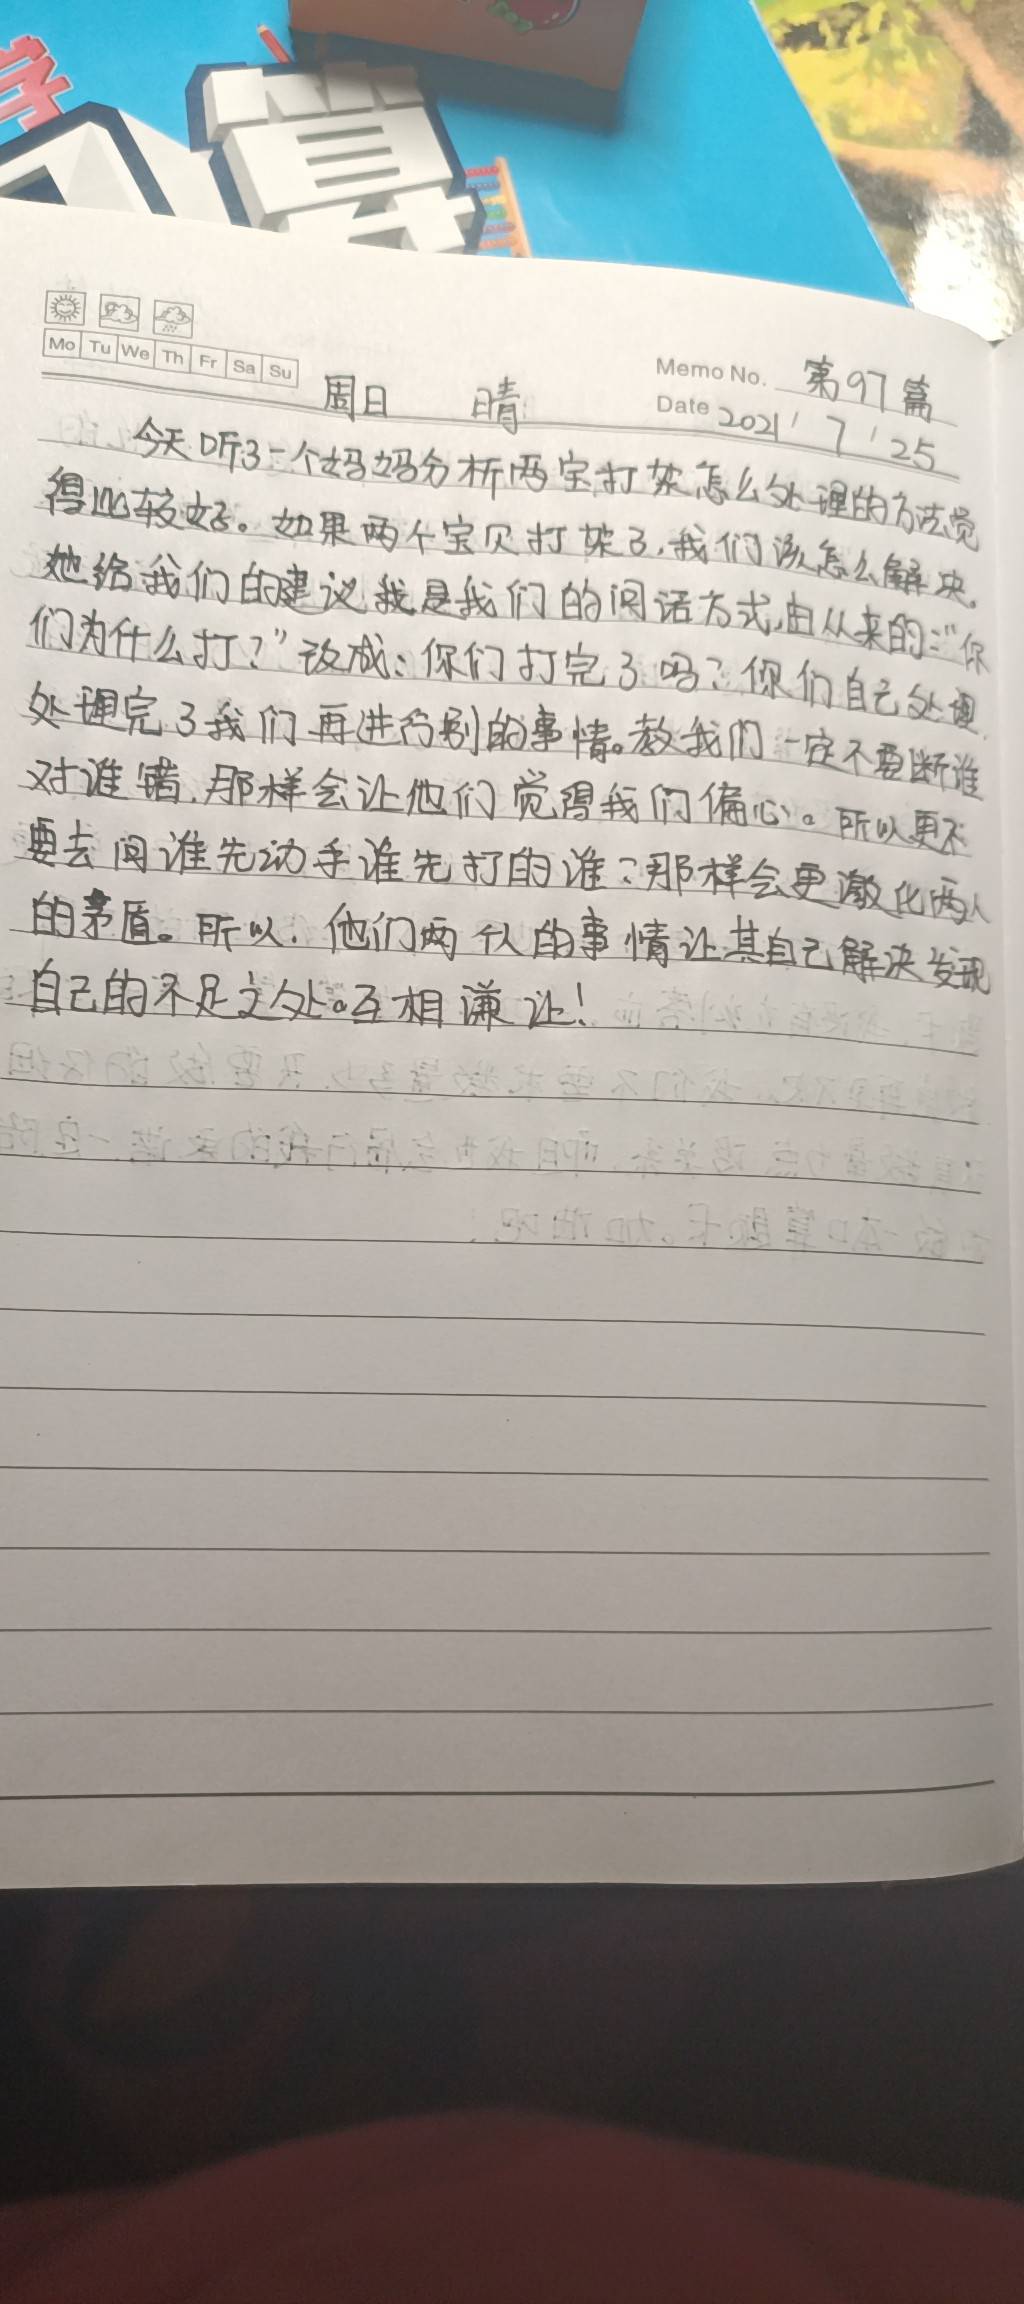 算
Mo Tu We Th Fr Sa Su
Memo No. 第97篇
周日 晴 Date 2021 / 7 / 25
今天听了一个妈妈分析两宝打架怎么处理的方法觉
得比较好。如果两个宝贝打架了,我们该怎么解决。
她给我们的建议就是我们的问话方式,由从来的:“你
们为什么打?”改成:你们打完了吗?你们自己处理
处理完了我们再进行别的事情。教我们一定不要断谁
对谁错,那样会让他们觉得我们偏心。所以更不
要去问谁先动手谁先打的谁?那样会更激化两人
的矛盾。所以.他们两个人的事情让其自己解决发现
自己的不足之处。互相谦让!